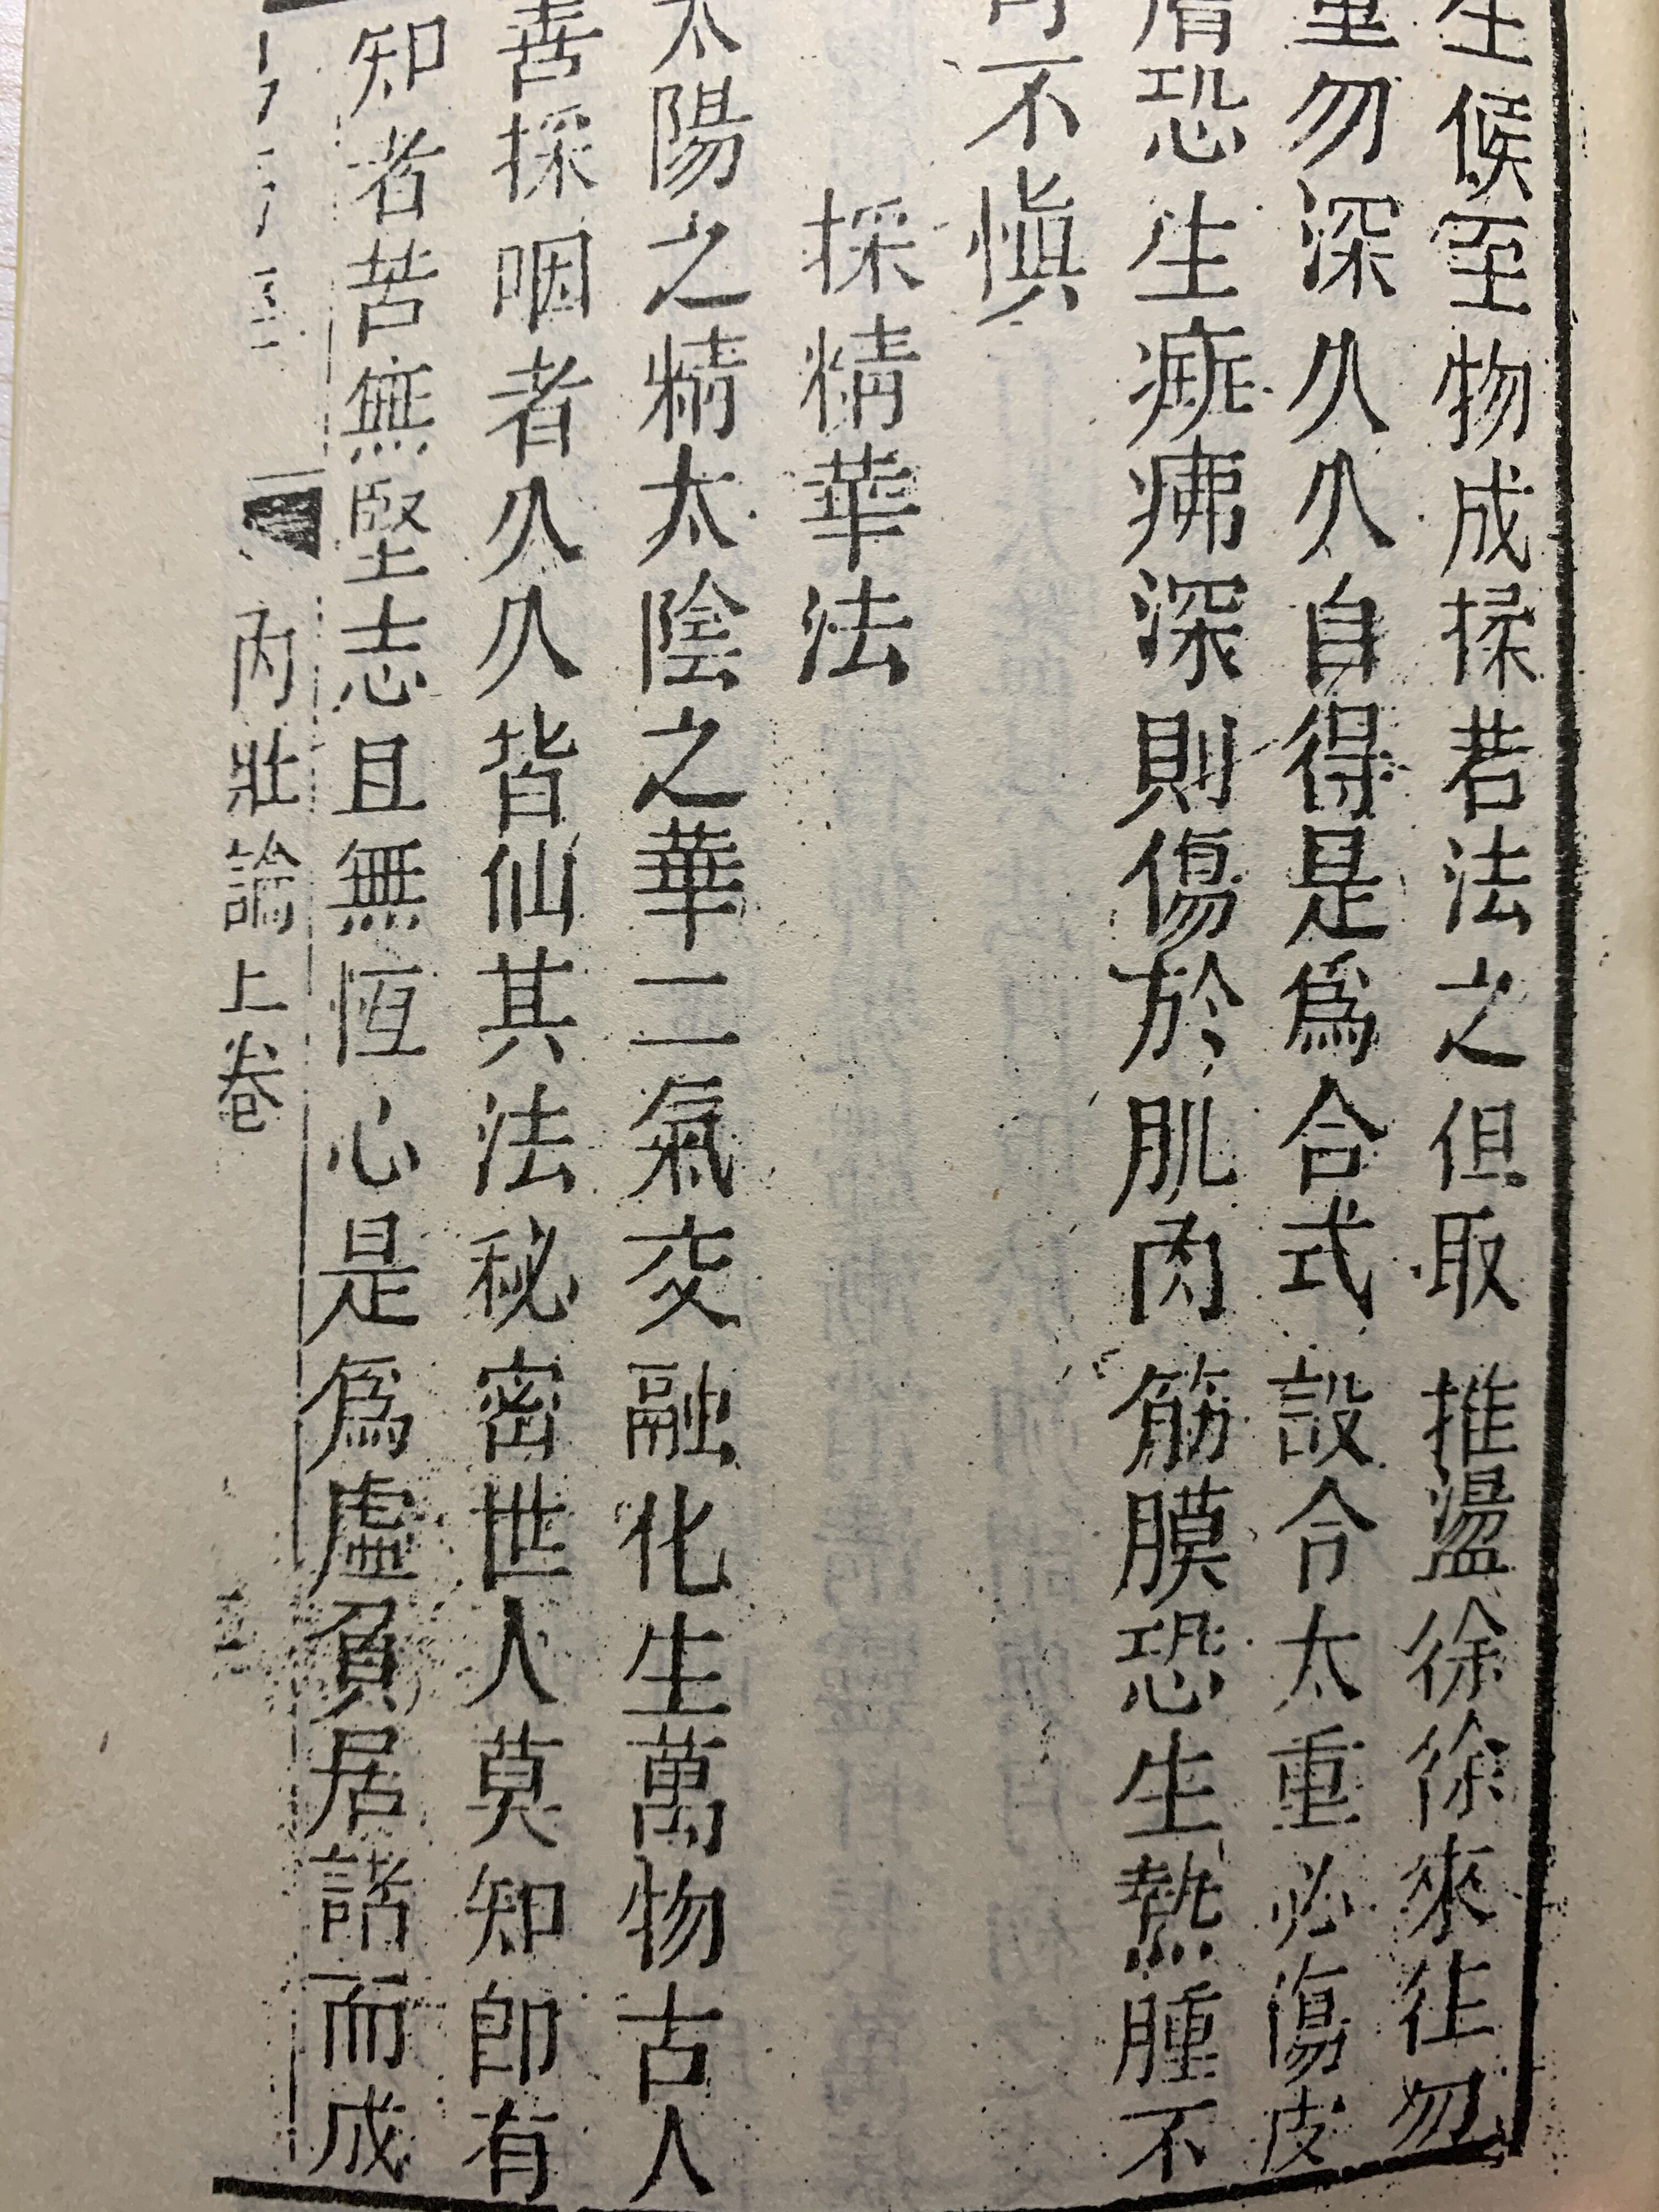 生候至物成揉若法之但取推盪徐徐來往勿
重勿深久久自得是爲合式設令太重必傷皮
膚恐生㾴疿深則傷於肌肉筋膜恐生熱腫不
可不慎
採精華法
太陽之精太陰之華二氣交融化生萬物古人
善採咽者久久皆仙其法秘密世人莫知卽有
知者苦無堅志且無恆心是爲虛負居諸而成
內壯論上卷